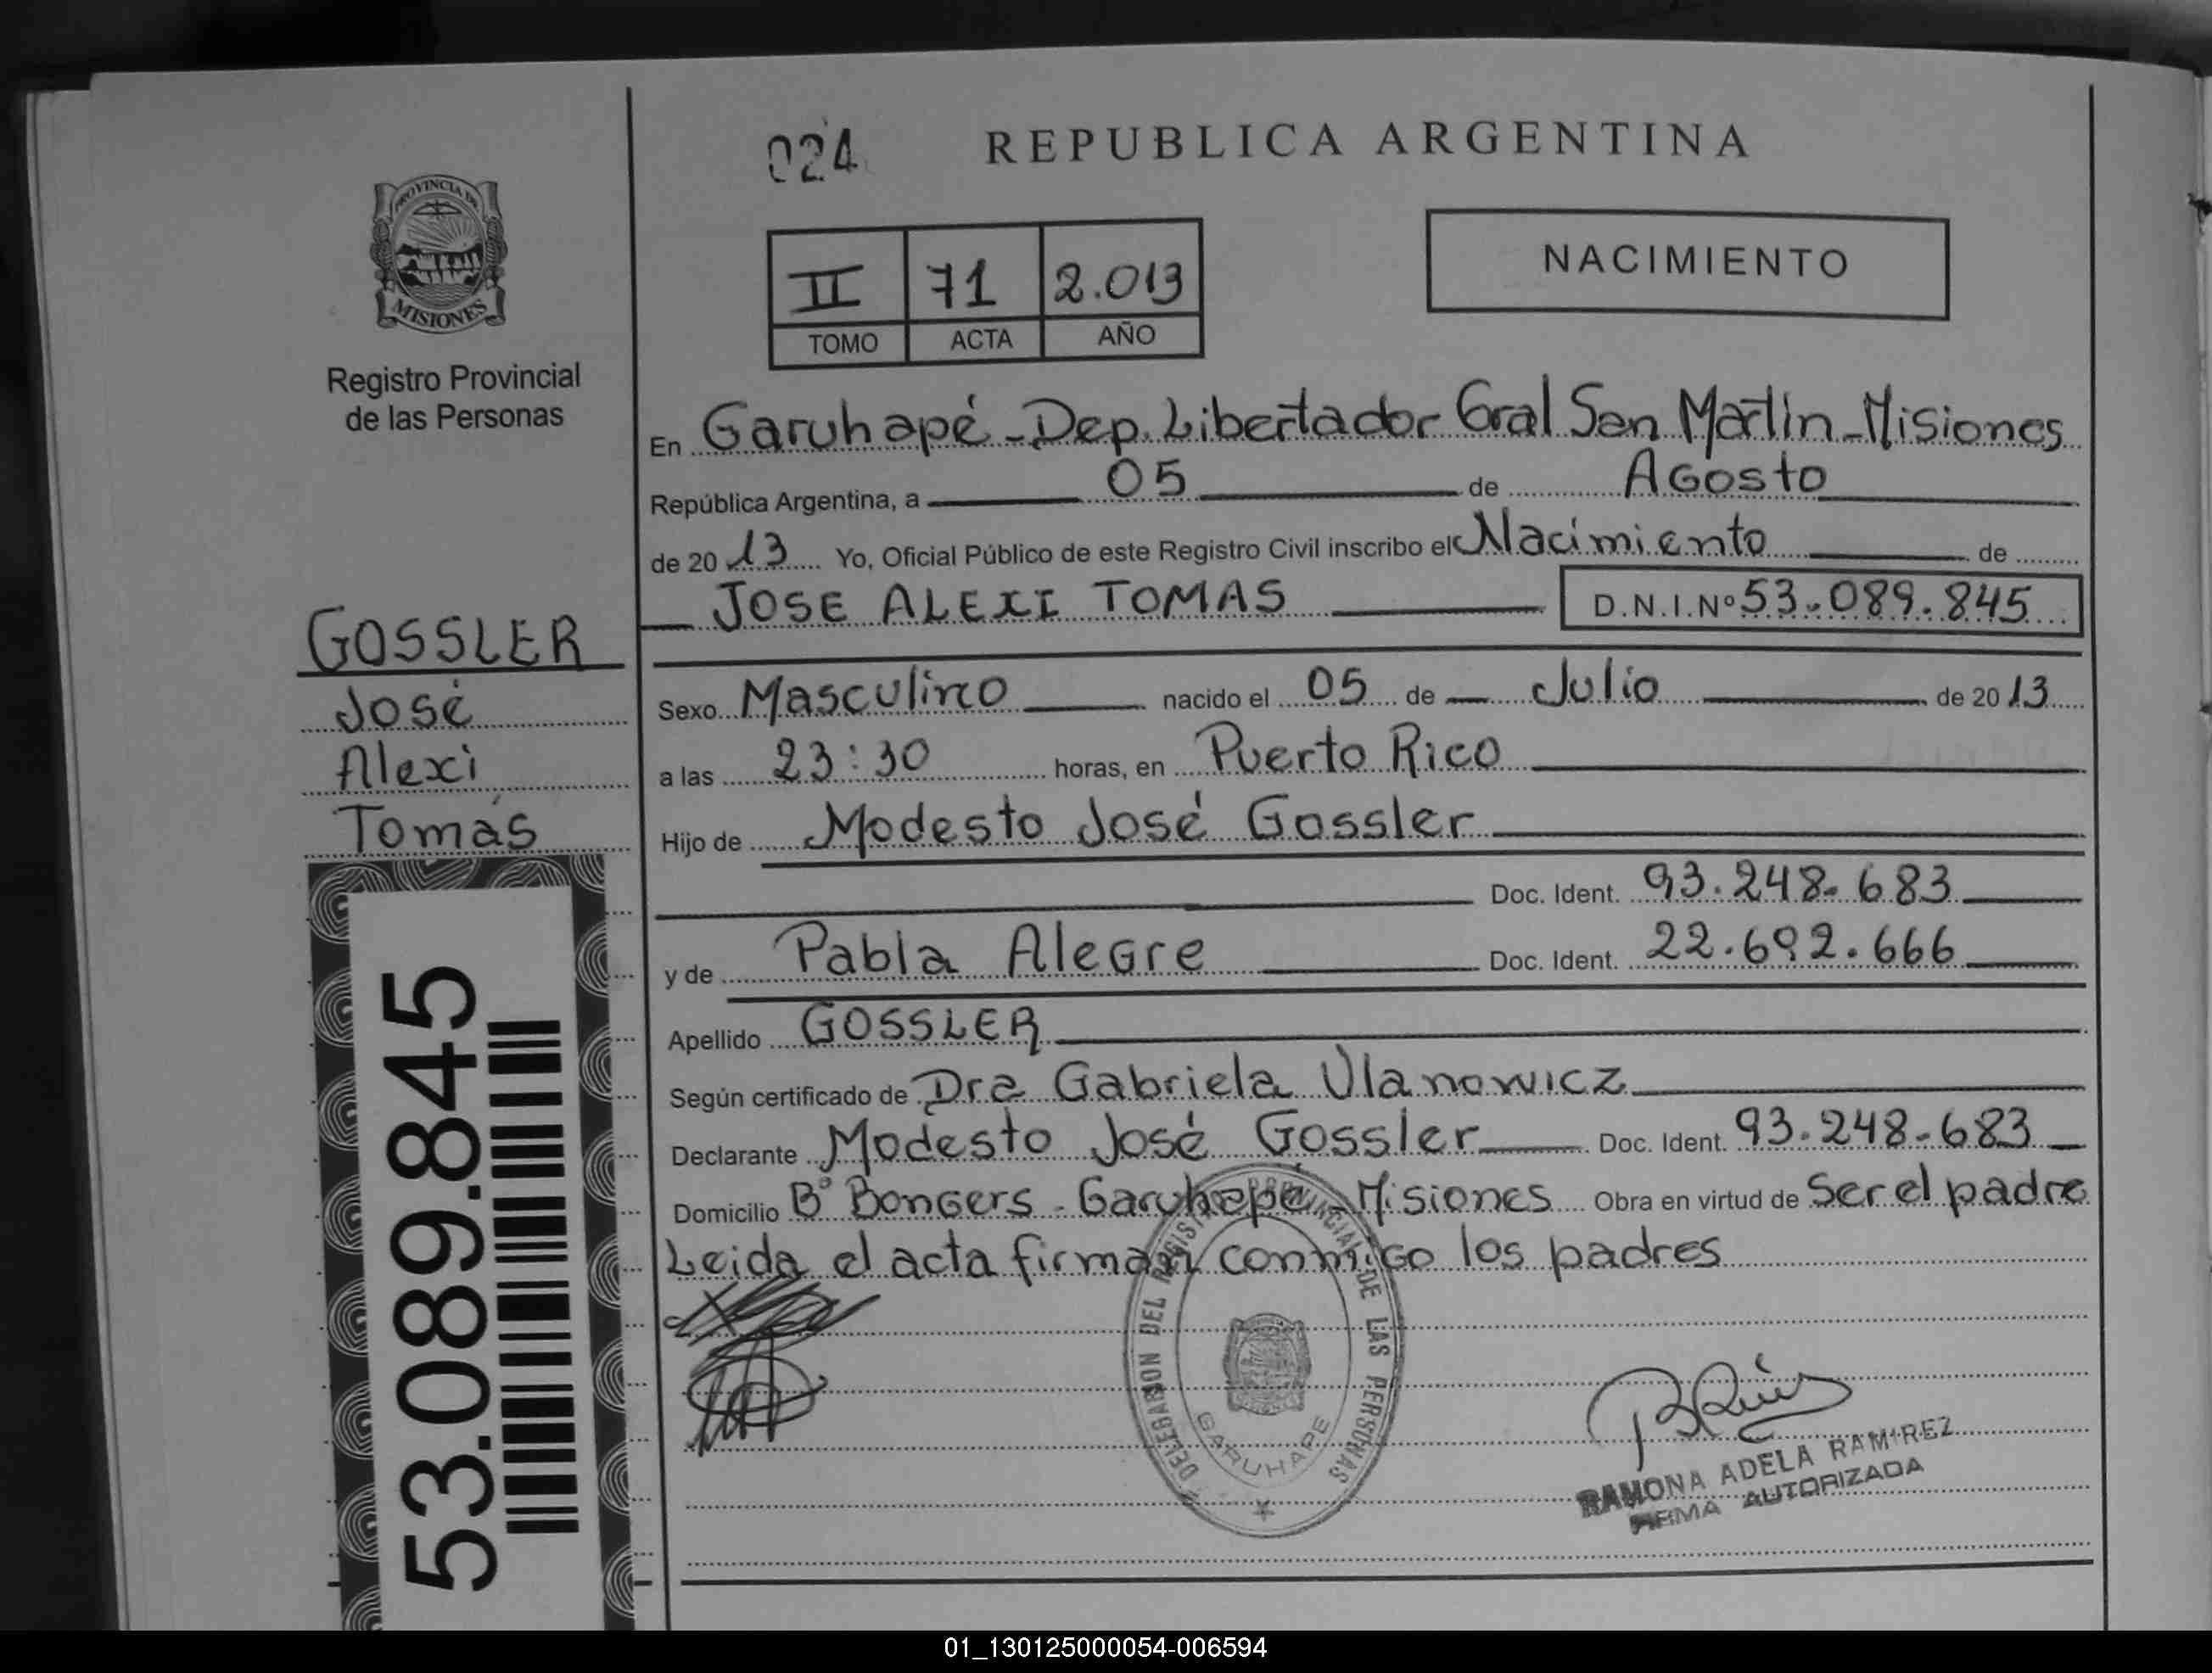 024
REPUBLICA ARGENTINA
PROVINCIA DE
MISIONES
Registro Provincial
de las Personas
II 71 2.013
TOMO ACTA AÑO
NACIMIENTO
En Garuhapé - Dep. Libertador Gral San Martin - Misiones
República Argentina, a 05 de Agosto
de 20 13 Yo, Oficial Público de este Registro Civil inscribo el Nacimiento de
JOSE ALEXI TOMAS D.N.I.Nº 53.089.845
GOSSLER
José
Alexi
Tomás
Sexo Masculino nacido el 05 de Julio de 20 13
a las 23:30 horas, en Puerto Rico
Hijo de Modesto José Gossler
Doc. Ident. 93.248.683
y de Pabla Alegre Doc. Ident. 22.692.666
Apellido GOSSLER
Según certificado de Dra Gabriela Ulanowicz
Declarante Modesto José Gossler Doc. Ident. 93.248.683
Domicilio Bº Bongers - Garuhapé - Misiones Obra en virtud de Ser el padre
Leida el acta firman conmigo los padres
53.089.845
DELEGACION DEL REGISTRO PROVINCIAL DE LAS PERSONAS
GARUHAPE
RAMONA ADELA RAMIREZ
FIRMA AUTORIZADA
01_130125000054-006594